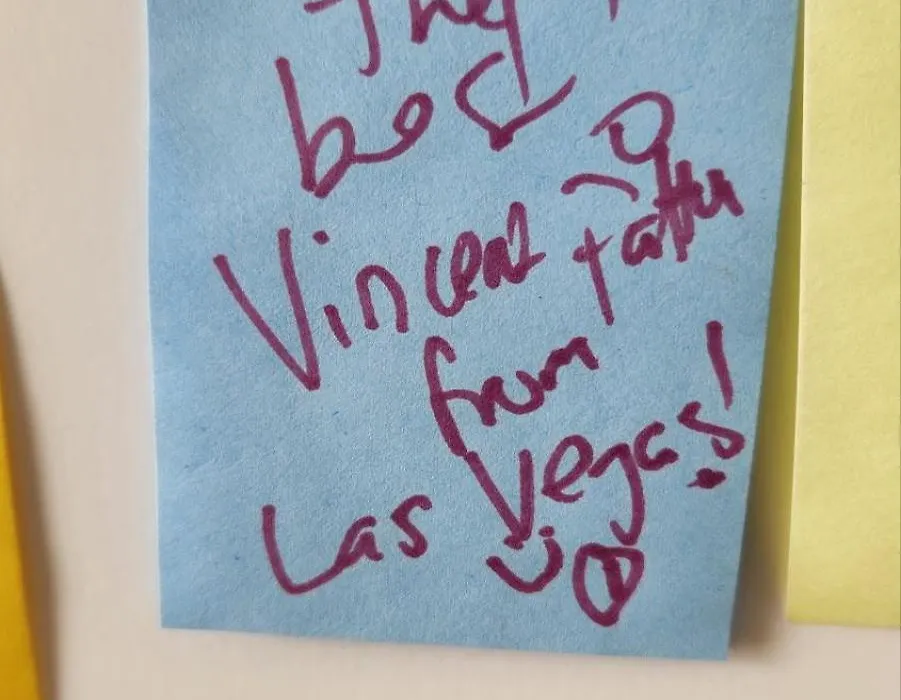 They
bes
Vincent
from
Las Vegas!